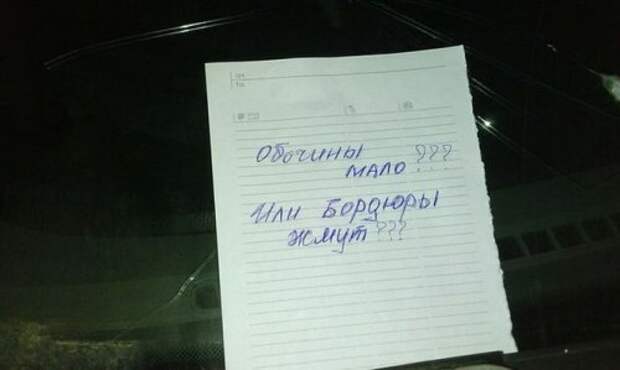 Обочины
мало???
Или Бордюры
жмут???